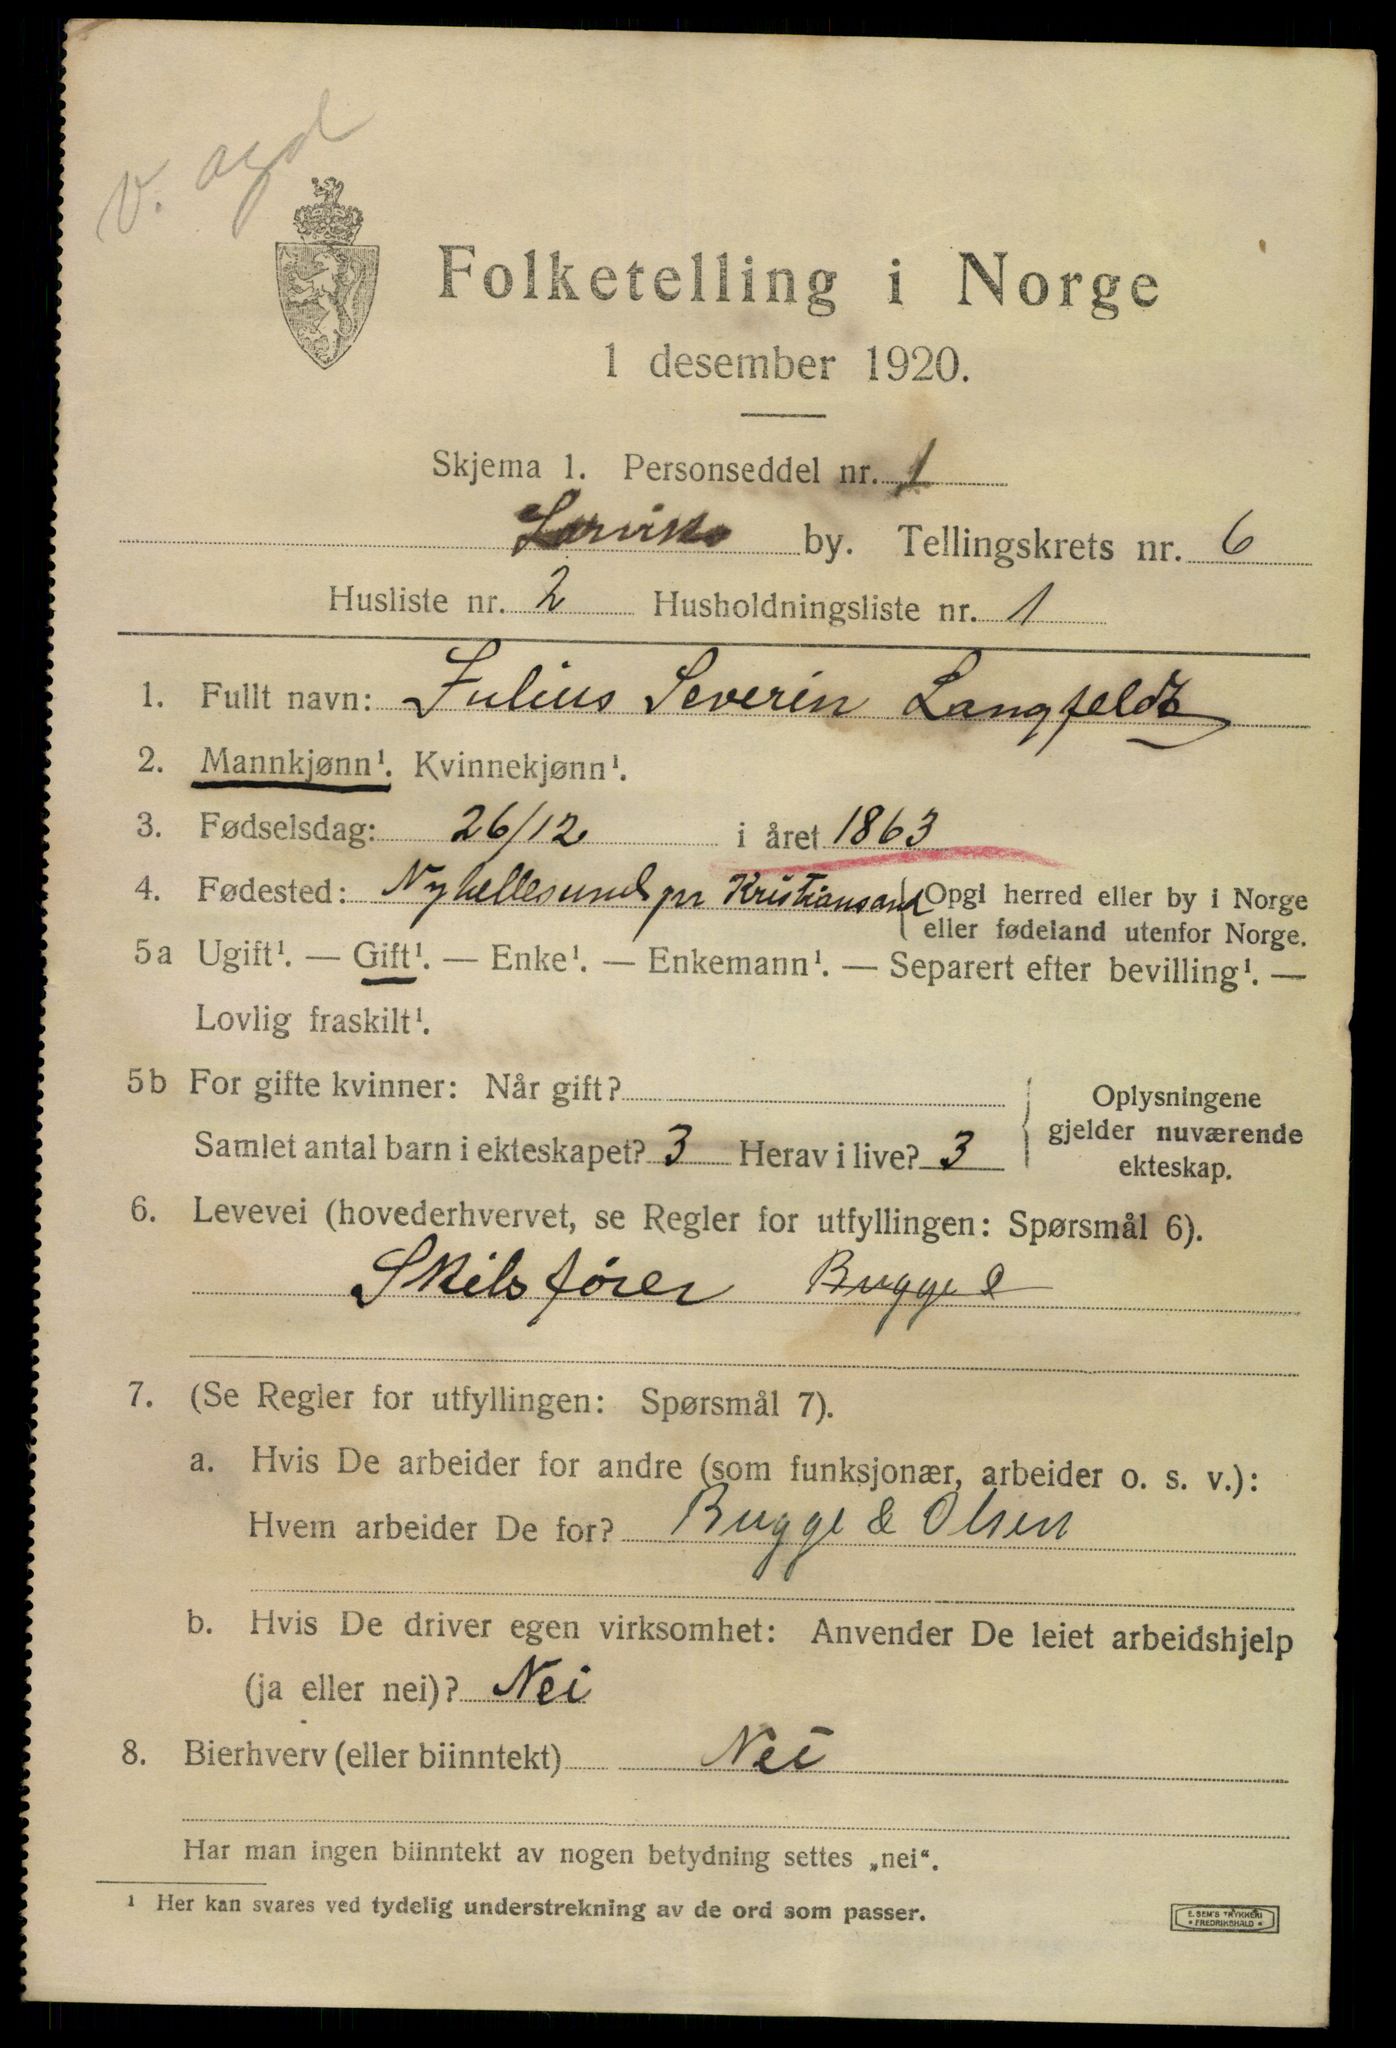 v. agd
Folketelling i Norge
1 desember 1920.
Skjema 1. Personseddel nr. 1
Larviks by. Tellingskrets nr. 6
Husliste nr. 2 Husholdningsliste nr. 1
1. Fullt navn: Julius Severin Langfeldt
2. Mannkjønn¹. Kvinnekjønn¹.
3. Fødselsdag: 26/12 i året 1863
4. Fødested: Nyhellesund pr Kristiansand { Opgi herred eller by i Norge
eller fødeland utenfor Norge.
5a Ugift¹. — Gift¹. — Enke¹. — Enkemann¹. — Separert efter bevilling¹. —
Lovlig fraskilt¹.
5b For gifte kvinner: Når gift?
Samlet antal barn i ekteskapet? 3 Herav i live? 3
Oplysningene
gjelder nuværende
ekteskap.
6. Levevei (hovederhvervet, se Regler for utfyllingen: Spørsmål 6).
Skibsfører Bugge &
7. (Se Regler for utfyllingen: Spørsmål 7).
a. Hvis De arbeider for andre (som funksjonær, arbeider o. s. v.):
Hvem arbeider De for? Bugge & Olsen
b. Hvis De driver egen virksomhet: Anvender De leiet arbeidshjelp
(ja eller nei)? Nei
8. Bierhverv (eller biinntekt) Nei
Har man ingen biinntekt av nogen betydning settes „nei“.
¹ Her kan svares ved tydelig understrekning av de ord som passer.
E. SEM'S TRYKKERI
* FREDRIKSHALD *